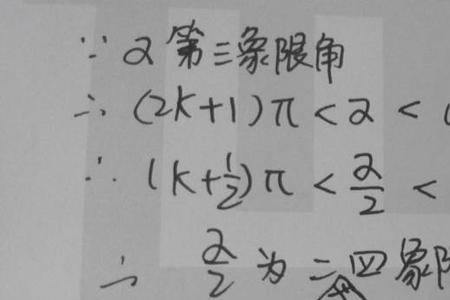 ∵ α 第三象限角
∴ (2k+1)π < α < (
∴ (k+1/2)π < α/2 <
∴ α/2 为二四象限